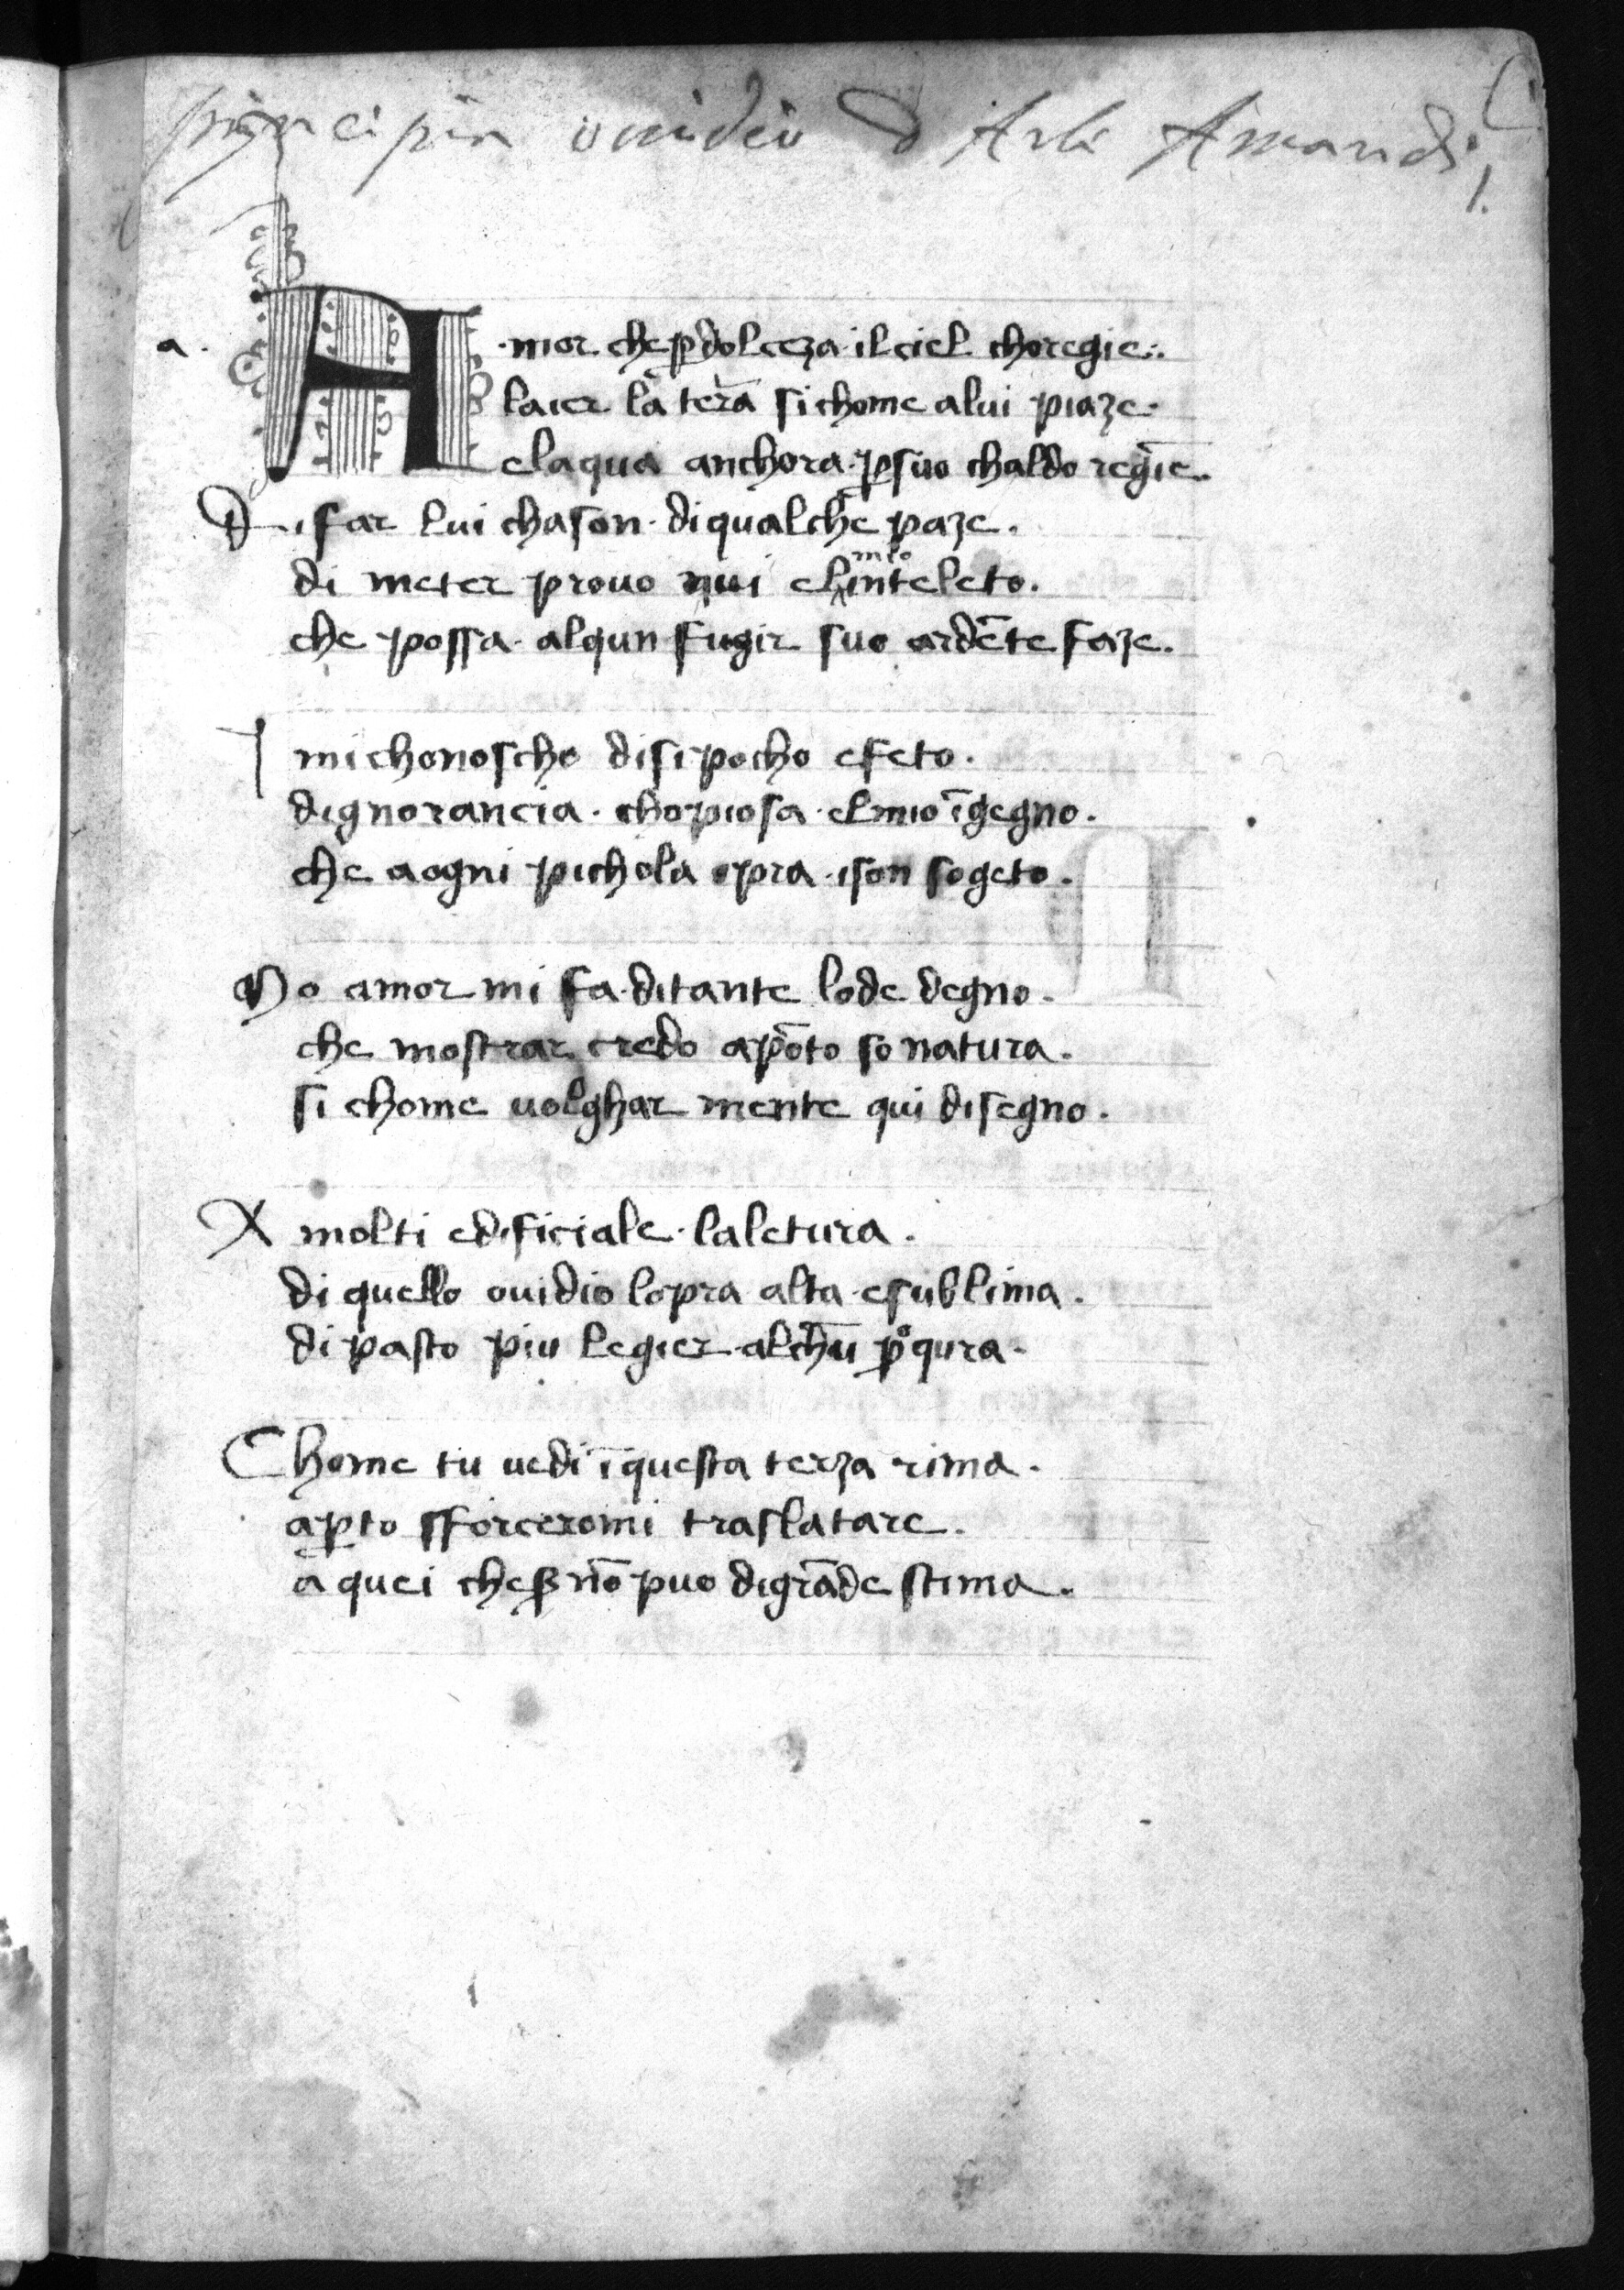 principia ouidio d Arte Amandi
1.
a.
A·mor che ꝑ dolceza·il ciel choregie:.
laier la tera͂ si chome alui piaze·
elaqua anchora·ꝑ suo chaldo regie͂.
Di far lui chason·di qualche paze.
di meter prouo nui el mio inteleto.
che possa·alqun fugir suo arde͂te faze.
I mi chonoscho di si pocho efeto.
dignorancia·chopiosa·el mio i͂gegno.
che aogni pichola opra·ison sogeto.
Mo amor mi fa·di tante lode degno.
che mostrar credo apo͂to so natura.
si chome uolghar mente qui disegno.
A molti edificiale·laletura.
di quello ouidio lopra alta·esublima.
di pasto piu legier·alchu͂ ꝓqura.
Chome tu uedi i͂ questa terza rima.
aꝑto sforceromi traslatare.
a quei che ꝑ no͂ puo di gra͂de stima.